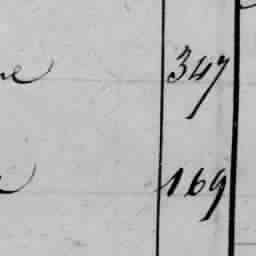 347
169